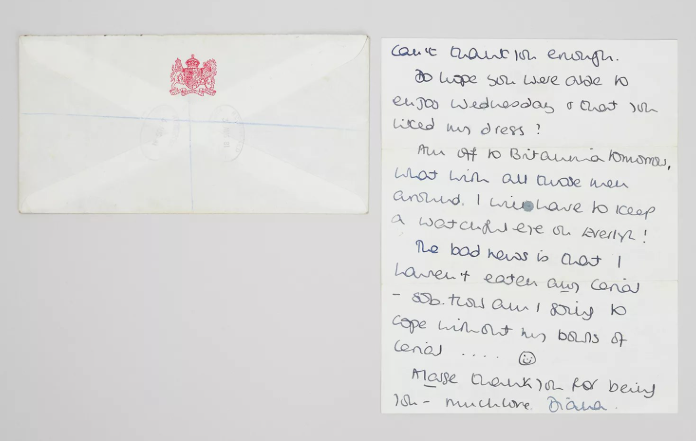 can't thank you enough.
Do hope you were able to
enjoy Wednesday & that you
liked my dress?
Am off to Britannia tomorrow,
what with all those men
around. I will have to keep
a watchful eye on Evelyn!
The bad news is that I
haven't eaten any cerial
- sob. How am I going to
cope without my bowls of
cerial ....
A large thank you for being
you - much love Diana.